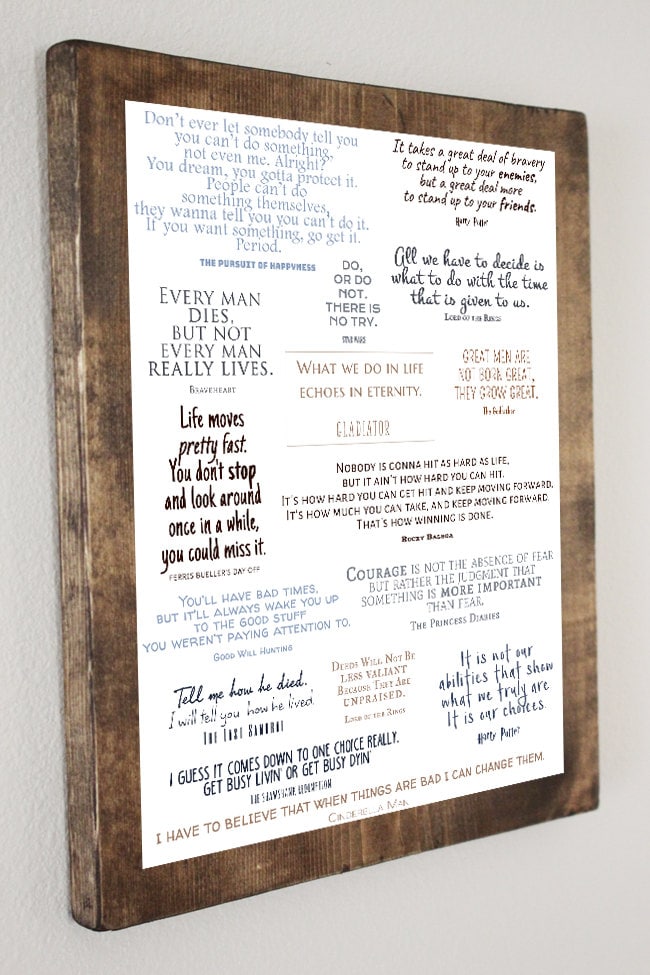 Don't ever let somebody tell you
you can't do something,
not even me. Alright?
You dream, you gotta protect it.
People can't do
something themselves,
they wanna tell you you can't do it.
If you want something, go get it.
Period.
THE PURSUIT OF HAPPYNESS
It takes a great deal of bravery
to stand up to your enemies,
but a great deal more
to stand up to your friends.
Harry Potter
DO,
OR DO
NOT.
THERE IS
NO TRY.
STAR WARS
All we have to decide is
what to do with the time
that is given to us.
LORD OF THE RINGS
EVERY MAN
DIES,
BUT NOT
EVERY MAN
REALLY LIVES.
BRAVEHEART
WHAT WE DO IN LIFE
ECHOES IN ETERNITY.
GLADIATOR
GREAT MEN ARE
NOT BORN GREAT,
THEY GROW GREAT.
The Godfather
Life moves
pretty fast.
You don't stop
and look around
once in a while,
you could miss it.
FERRIS BUELLER'S DAY OFF
NOBODY IS GONNA HIT AS HARD AS LIFE,
BUT IT AIN'T HOW HARD YOU CAN HIT.
IT'S HOW HARD YOU CAN GET HIT AND KEEP MOVING FORWARD.
IT'S HOW MUCH YOU CAN TAKE, AND KEEP MOVING FORWARD.
THAT'S HOW WINNING IS DONE.
ROCKY BALBOA
COURAGE IS NOT THE ABSENCE OF FEAR
BUT RATHER THE JUDGMENT THAT
SOMETHING IS MORE IMPORTANT
THAN FEAR.
THE PRINCESS DIARIES
YOU'LL HAVE BAD TIMES,
BUT IT'LL ALWAYS WAKE YOU UP
TO THE GOOD STUFF
YOU WEREN'T PAYING ATTENTION TO.
GOOD WILL HUNTING
DEEDS WILL NOT BE
LESS VALIANT
BECAUSE THEY ARE
UNPRAISED.
LORD OF THE RINGS
It is not our
abilities that show
what we truly are
It is our choices.
Harry Potter
Tell me how he died.
I will tell you how he lived.
THE LAST SAMURAI
I GUESS IT COMES DOWN TO ONE CHOICE REALLY.
GET BUSY LIVIN' OR GET BUSY DYIN'
THE SHAWSHANK REDEMPTION
I HAVE TO BELIEVE THAT WHEN THINGS ARE BAD I CAN CHANGE THEM.
CINDERELLA MAN